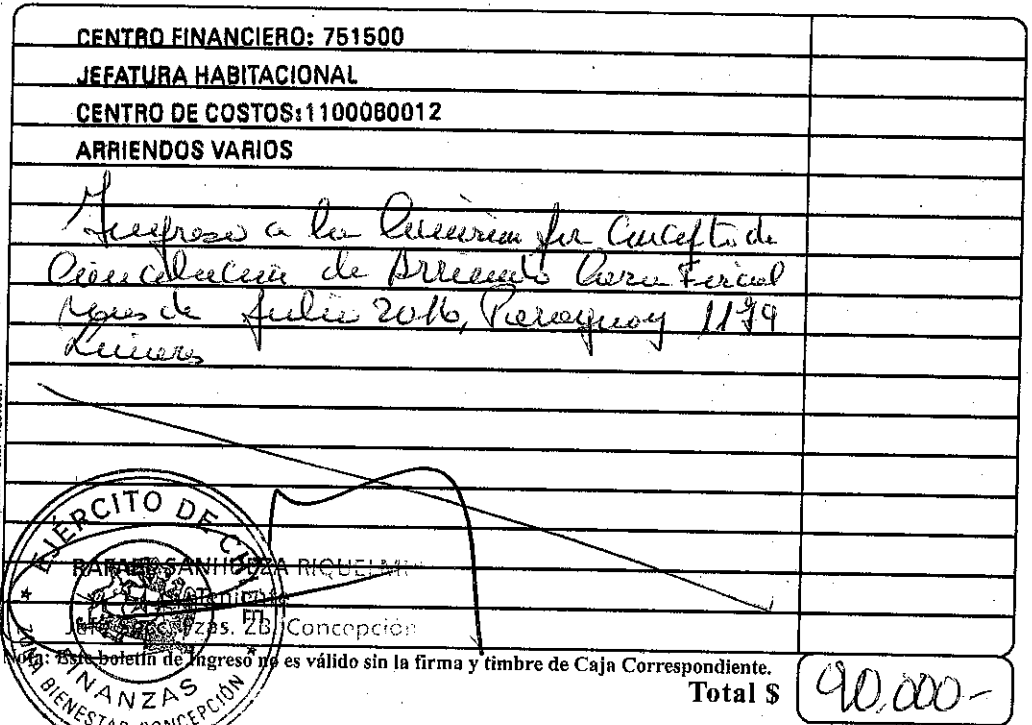 CENTRO FINANCIERO: 751500
JEFATURA HABITACIONAL
CENTRO DE COSTOS:1100080012
ARRIENDOS VARIOS
Ingreso a la Comisión por Concepto de
Cancelación de Arriendo Casa Fiscal
mes de Julio 2016, Paraguay 1179
Linares
EJÉRCITO DE CHILE
RAFAEL SANHUEZA RIQUELME
Teniente
Concepción
FINANZAS
ZONA BIENESTAR CONCEPCIÓN
Nota: Este boletín de Ingreso no es válido sin la firma y timbre de Caja Correspondiente.
Total $ 90.000-